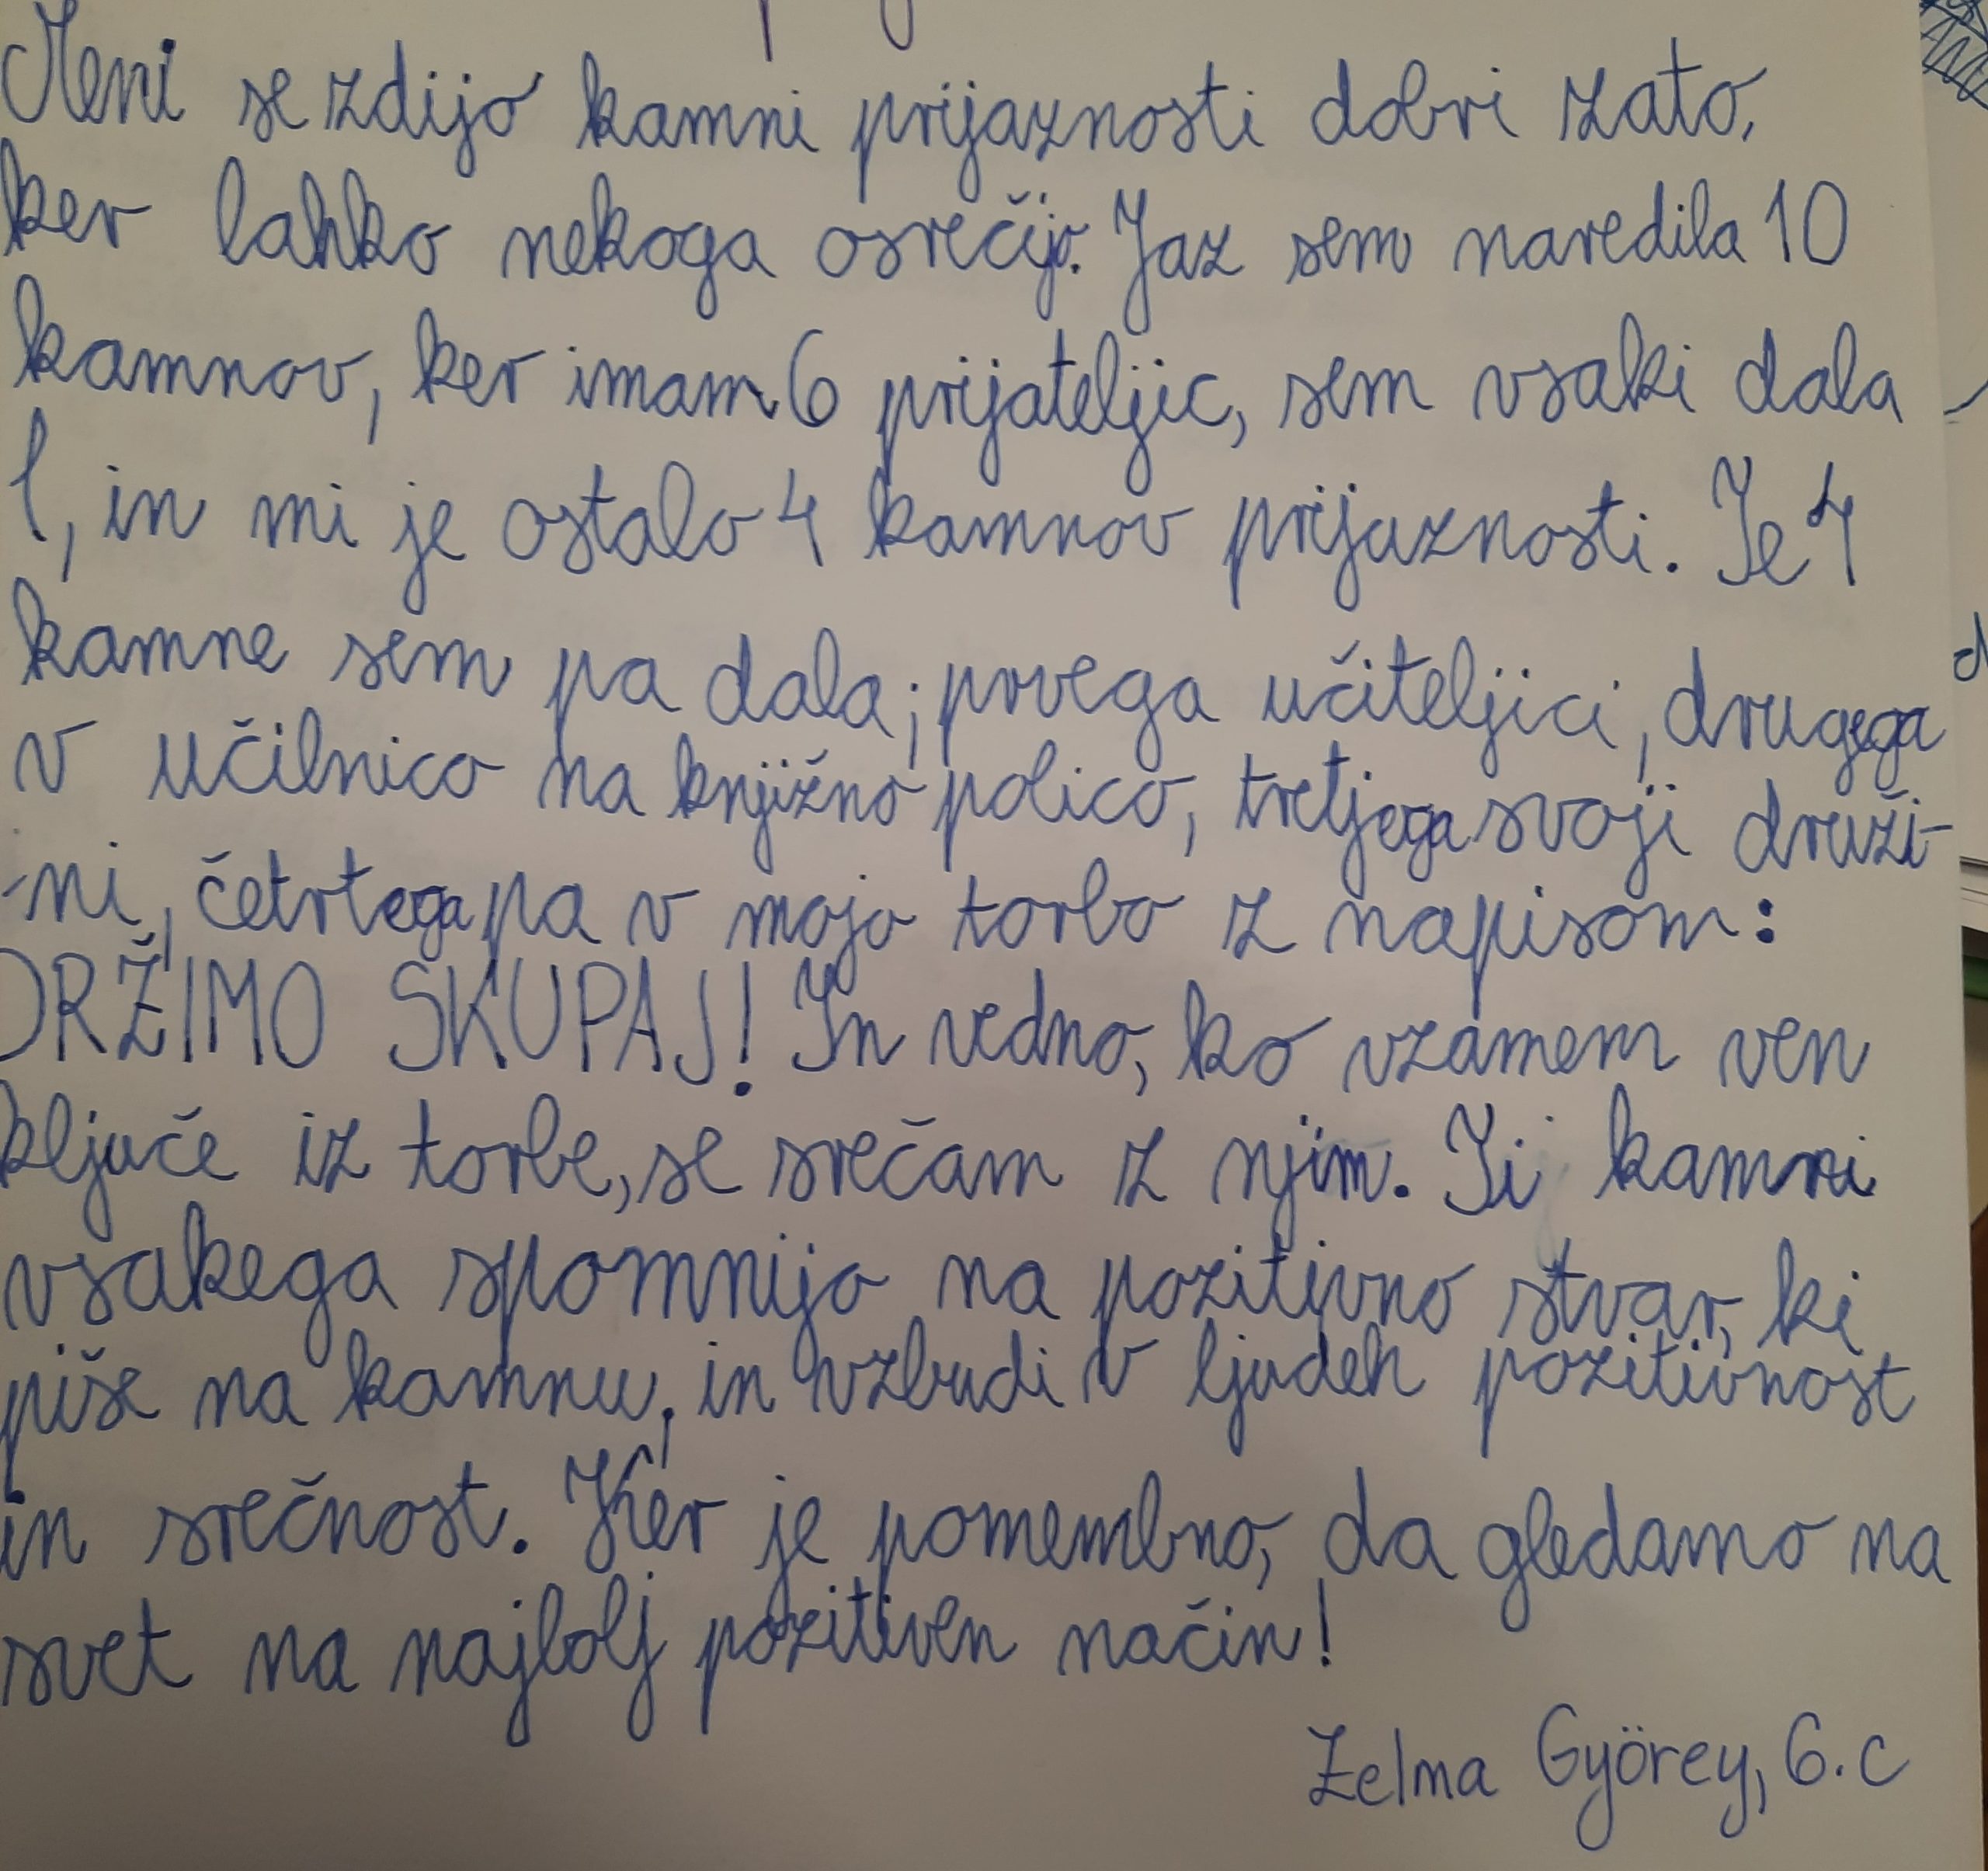 Meni se zdijo kamni prijaznosti dobri zato,
ker lahko nekoga osrečijo. Jaz sem naredila 10
kamnov, ker imam 6 prijateljic, sem vsaki dala
1, in mi je ostalo 4 kamnov prijaznosti. Te 4
kamne sem pa dala; prvega učiteljici, drugega
v učilnico na knjižno polico, tretjega svoji druži-
-ni, četrtega pa v mojo torbo z napisom:
DRŽIMO SKUPAJ! In vedno, ko vzamem ven
ključe iz torbe, se srečam z njim. Ti kamni
vsakega spomnijo na pozitivno stvar, ki
piše na kamnu, in vzbudi v ljudeh pozitivnost
in srečnost. Ker je pomembno, da gledamo na
svet na najbolj pozitiven način!
Zelma Györey, 6.c